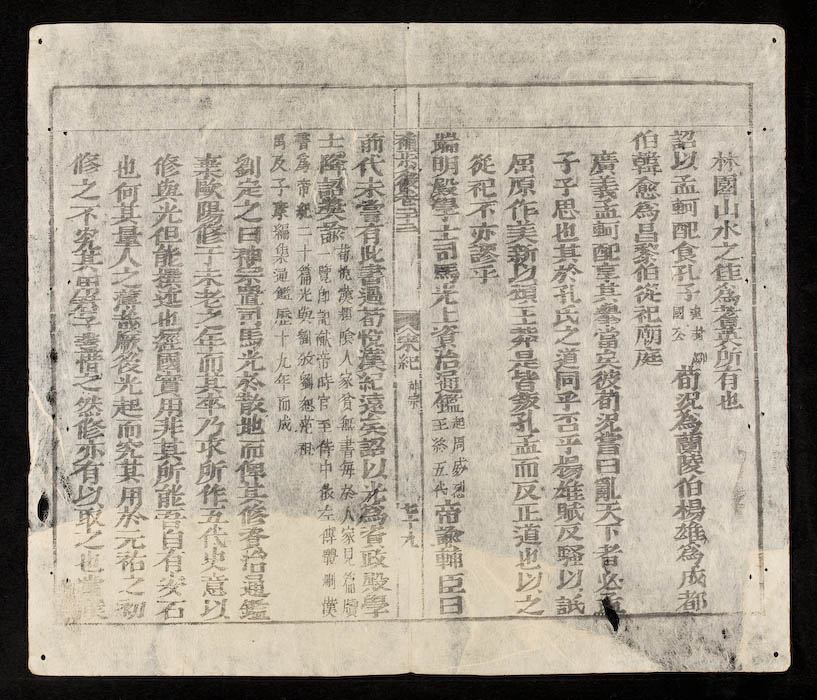 林園山水之佳爲耆英所有也
詔以孟軻配食孔子荀況爲蘭陵伯楊雄爲成都
伯韓愈爲昌黎伯從祀廟庭
廣義孟軻配享其舉當矣彼荀況嘗曰亂天下者必孟
子子思也其於孔氏之道同乎否乎楊雄賦反騷以詆
屈原作美新以頌王莽是皆叛孔孟而反正道也以之
從祀不亦謬乎
端明殿學士司馬光上資治通鑑起周威烈王終五代帝諭輔臣曰
宋紀 神宗 七十九
前代未嘗有此書過荀悅漢紀遠矣詔以光爲資政殿學
士降詔獎諭荀悅漢潁陰人家貧無書每於人家見篇牘一覽卽記獻帝時官至侍中依左傳體刪漢
書爲帝紀三十篇光與劉攽劉恕范祖禹及子康編集通鑑歷十九年而成
劉定之曰神宗置司馬光於散地而俾其修資治通鑑
棄歐陽修于未老之年而其卒乃求所作五代史意以
修與光但能撰述也經國實用非其所能吾自有安石
也何其量人之淺哉厥後光起而究其用於元祐之初
修之不究其用君子惜之然修亦有以取之也當濮